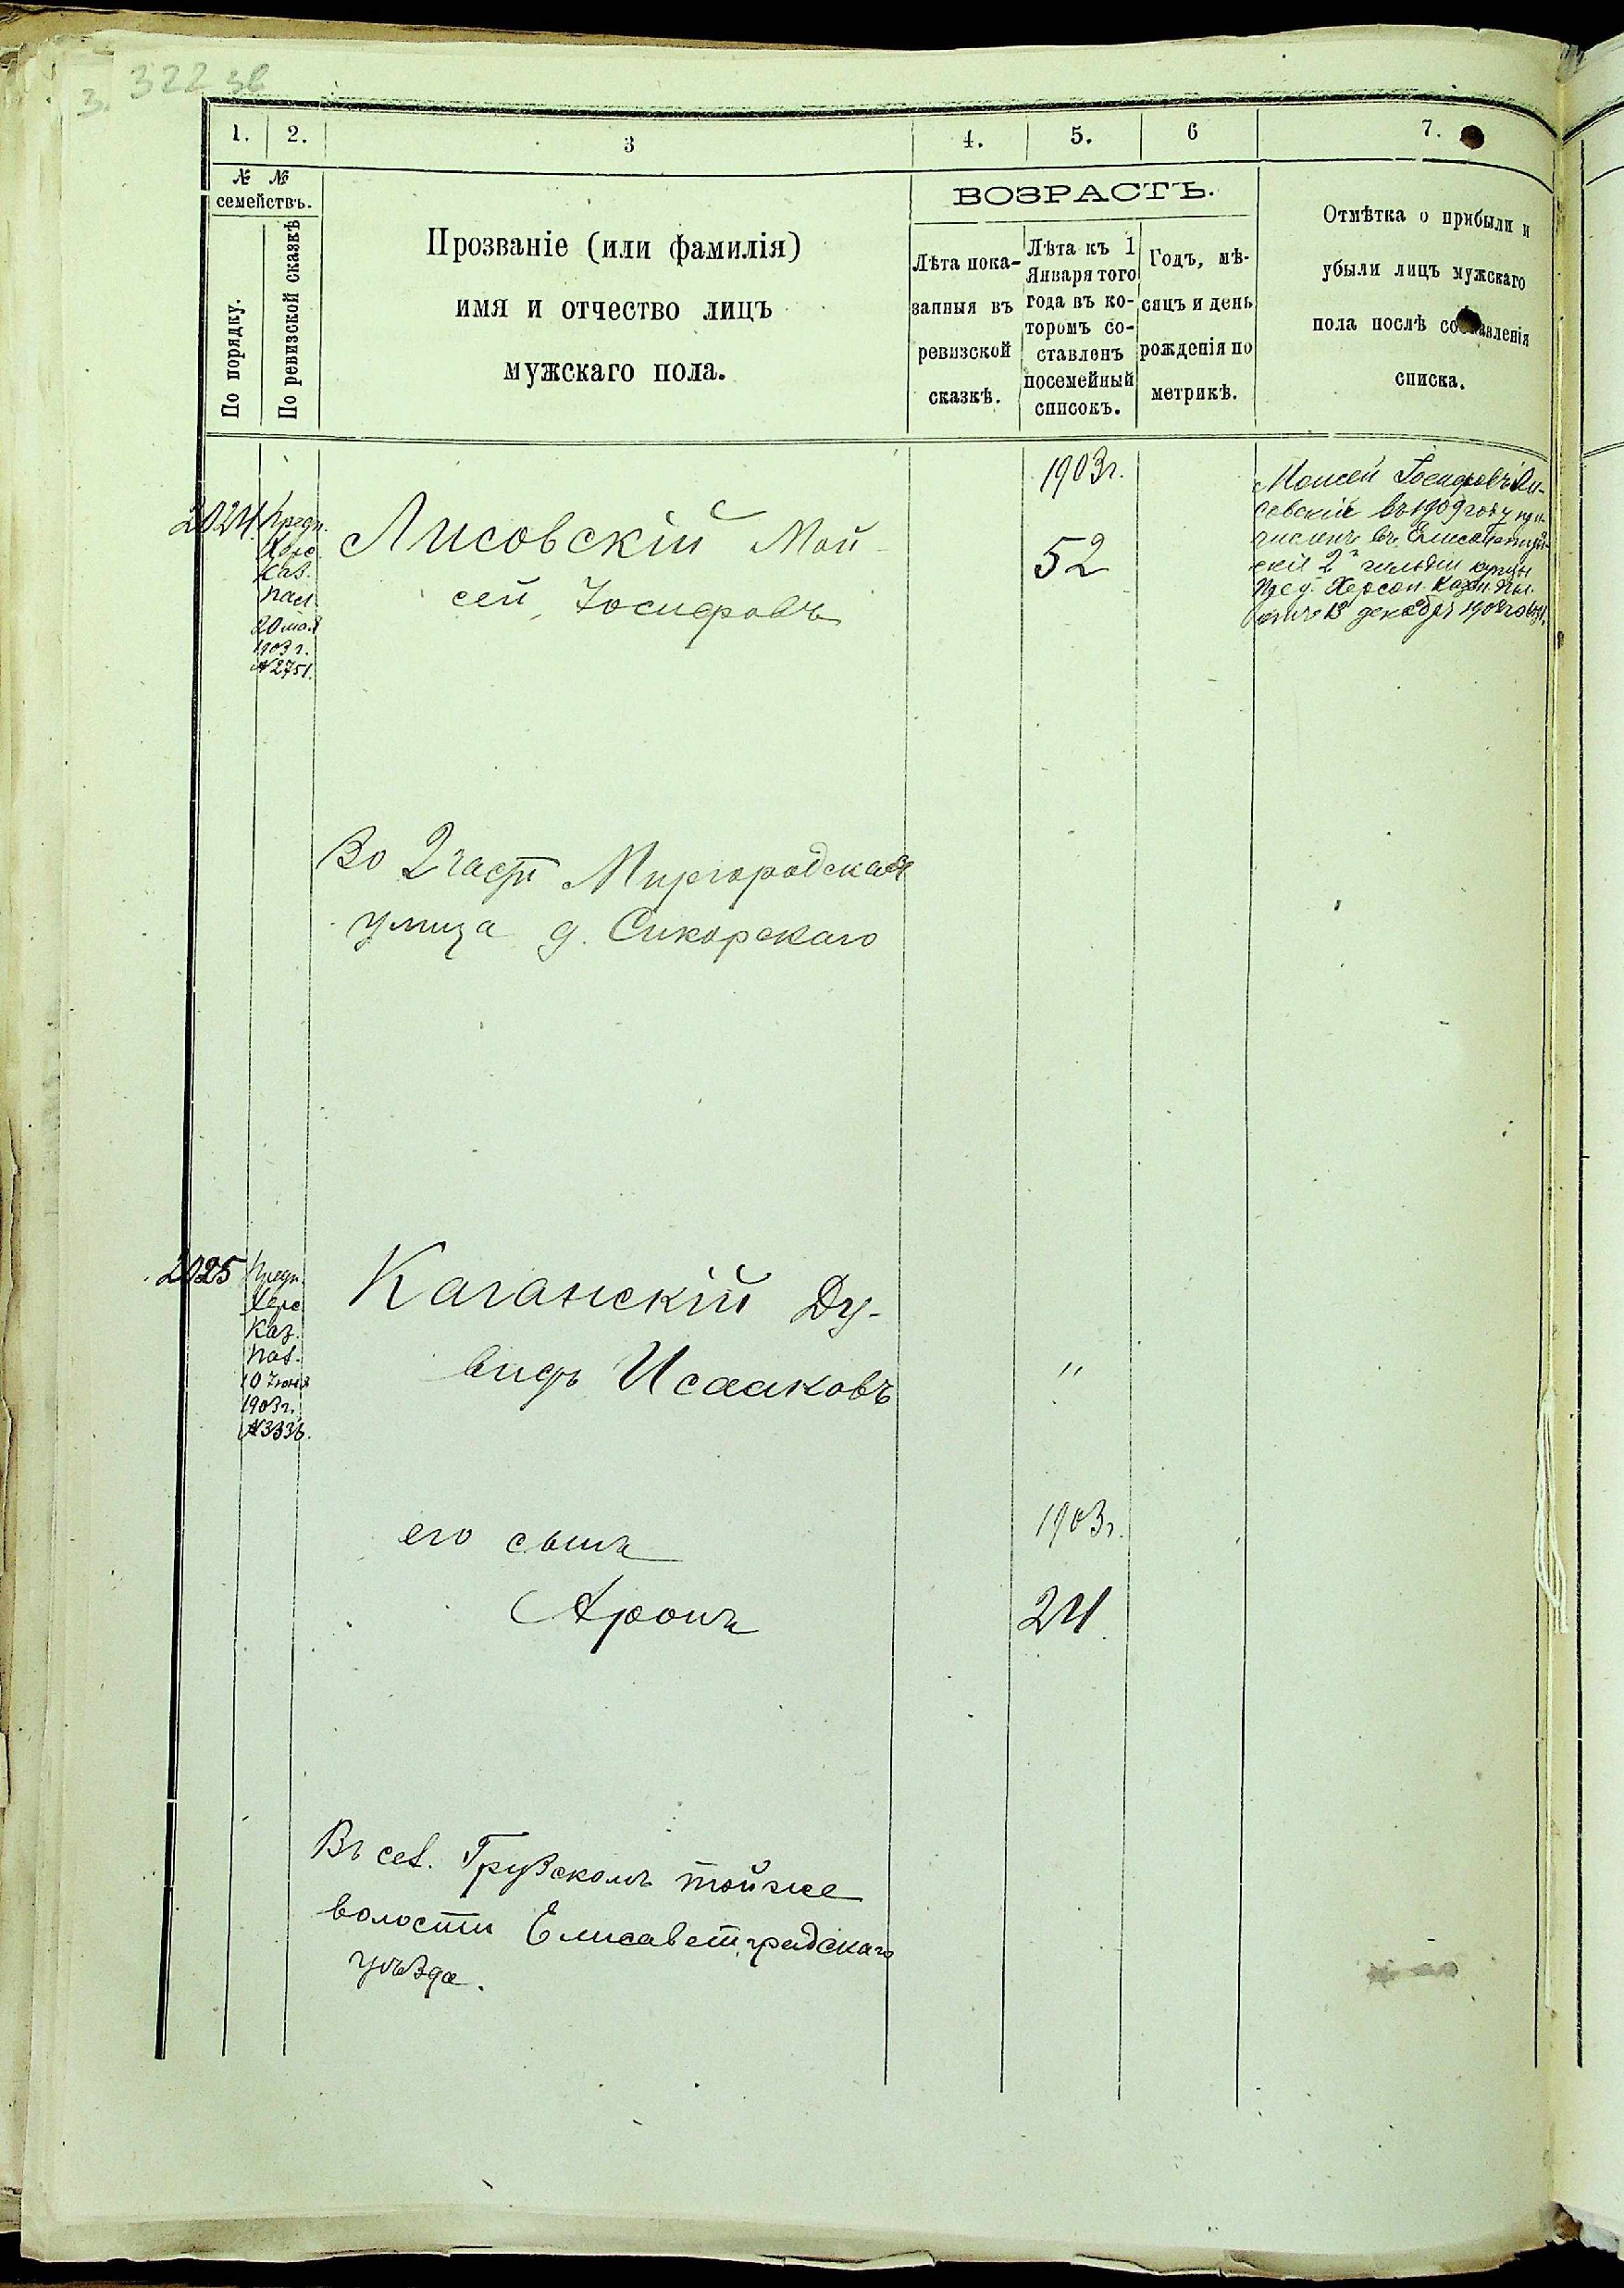 322 зв
3.
1. 2. 3 4. 5. 6 7.
№ № семействъ.
По порядку.
По ревизской сказкѣ
Прозваніе (или фамилія)
имя и отчество лицъ
мужскаго пола.
ВОЗРАСТЪ.
Лѣта пока-
занныя въ
ревизской
сказкѣ.
Лѣта къ 1
Января того
года въ ко-
торомъ со-
ставленъ
посемейный
списокъ.
Годъ, мѣ-
сяцъ и день
рожденія по
метрикѣ.
Отмѣтка о прибыли и
убыли лицъ мужскаго
пола послѣ составленія
списка.
2024.
Предп.
Херс.
Каз.
Пал.
20 мая
1903 г.
№ 2751.
Лисовскій Мой-
сей Іосифовъ
1903 г.
52
Моисей Іосифовъ Ли-
совскій въ 1909 году при-
численъ въ Елисаветград-
скіе 2й гильдіи купцы
Пред. Херсон. Казен. Па-
декабря
Во 2 части Миргородская
улица д. Сикорскаго
2025
Предп.
Херс
Каз.
Пал.
10 Іюня
1903 г.
№ 3336.
Каганскій Ду-
видъ Исааковъ
"
его сынъ
1903 г.
Аронъ
24
Въ сел. Грузскомъ той же
волости Елисаветградскаго
уѣзда.